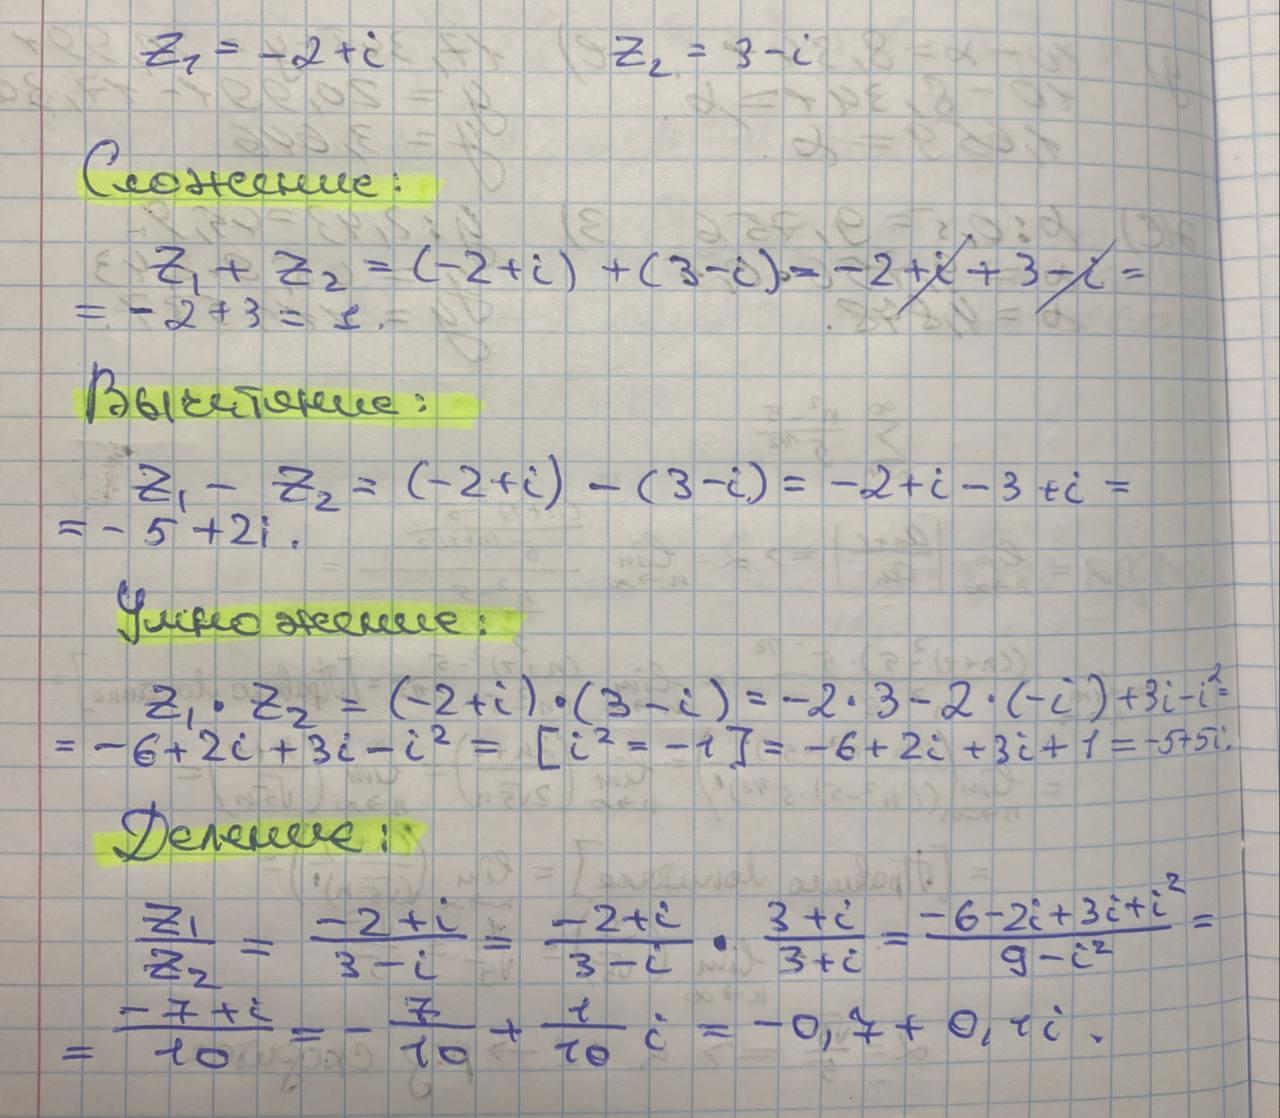 z₁ = -2+i z₂ = 3-i
Сложение:
z₁ + z₂ = (-2+i) + (3-i) = -2+i + 3-i =
= -2+3 = 1.
Вычитание:
z₁ - z₂ = (-2+i) - (3-i) = -2+i-3+i =
= -5+2i.
Умножение:
z₁ · z₂ = (-2+i)·(3-i) = -2·3-2·(-i)+3i-i² =
= -6+2i+3i-i² = [i² = -1] = -6+2i+3i+1 = -5+5i.
Деление:
z₁/z₂ = (-2+i)/(3-i) = (-2+i)/(3-i) · (3+i)/(3+i) = (-6-2i+3i+i²)/(9-i²) =
= (-7+i)/10 = -7/10 + 1/10 i = -0,7 + 0,1i.